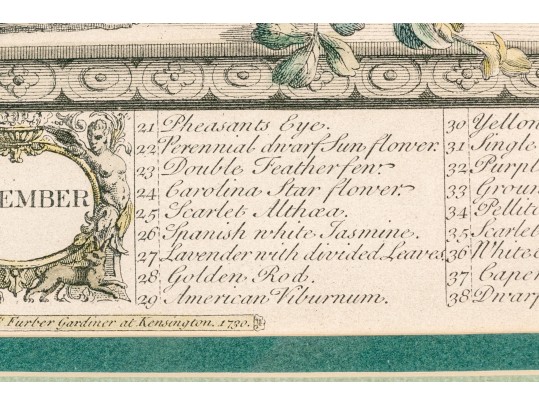 EMBER
21 Pheasants Eye.
22 Perennial dwarf Sun flower.
23 Double Featherfew.
24 Carolina Star flower.
25 Scarlet Althæa.
26 Spanish white Jasmine.
27 Lavender with divided Leaves
28 Golden Rod.
29 American Viburnum.
30 Yellow
31 Single
32 Purpl
33 Groun
34 Pellito
35 Scarlet
36 White
37 Caper
38 Dwarf
Furber Gardiner at Kensington. 1730.